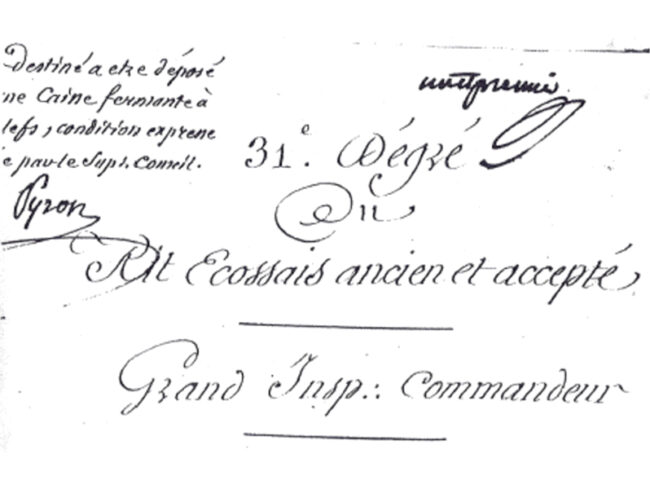 Destiné a etre déposé
ne Caisse fermante à
lefs, condition expresse
e par le Supr. Conseil.
Pyron
31e. Dégré
Du
Rit Ecossais ancien et accepté,
Grand Insp.: Commandeur